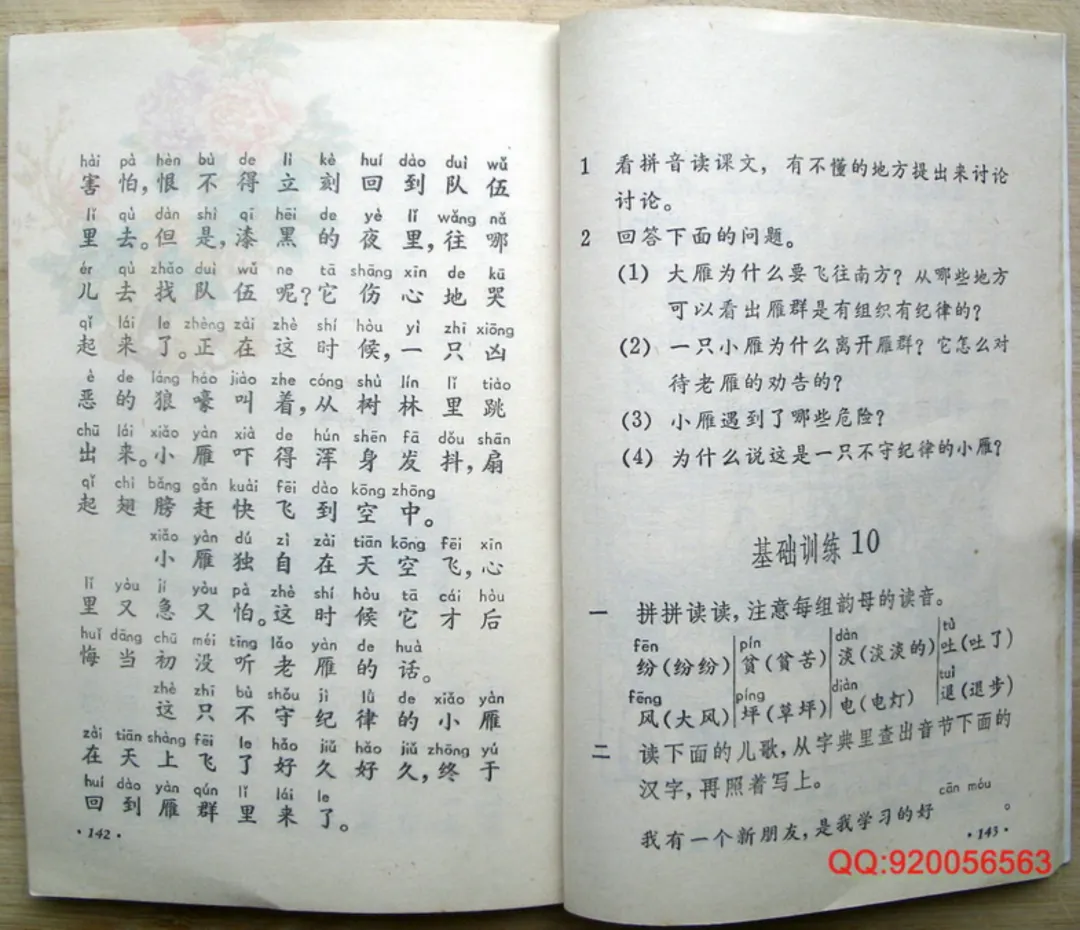 hài pà hèn bù de lì kè huí dào duì wǔ
害怕,恨不得立刻回到队伍
lǐ qù dàn shì qī hēi de yè lǐ wǎng nǎ
里去。但是,漆黑的夜里,往哪
ér qù zhǎo duì wǔ ne tā shāng xīn de kū
儿去找队伍呢?它伤心地哭
qǐ lái le zhèng zài zhè shí hòu yì zhī xiōng
起来了。正在这时候,一只凶
è de láng háo jiào zhe cóng shù lín lǐ tiào
恶的狼嚎叫着,从树林里跳
chū lái xiǎo yàn xià de hún shēn fā dǒu shān
出来。小雁吓得浑身发抖,扇
qǐ chì bǎng gǎn kuài fēi dào kōng zhōng
起翅膀赶快飞到空中。
xiǎo yàn dú zì zài tiān kōng fēi xīn
小雁独自在天空飞,心
lǐ yòu jí yòu pà zhè shí hòu tā cái hòu
里又急又怕。这时候它才后
huǐ dāng chū méi tīng lǎo yàn de huà
悔当初没听老雁的话。
zhè zhī bù shǒu jì lǜ de xiǎo yàn
这只不守纪律的小雁
zài tiān shàng fēi le hǎo jiǔ hǎo jiǔ zhōng yú
在天上飞了好久好久,终于
huí dào yàn qún lǐ lái le
回到雁群里来了。
·142·
1 看拼音读课文,有不懂的地方提出来讨论
讨论。
2 回答下面的问题。
(1) 大雁为什么要飞往南方?从哪些地方
可以看出雁群是有组织有纪律的?
(2) 一只小雁为什么离开雁群?它怎么对
待老雁的劝告的?
(3) 小雁遇到了哪些危险?
(4) 为什么说这是一只不守纪律的小雁?
基础训练10
一 拼拼读读,注意每组韵母的读音。
fēn pín dàn tǔ
纷(纷纷) 贫(贫苦) 淡(淡淡的) 吐(吐了)
fēng píng diàn tuì
风(大风) 坪(草坪) 电(电灯) 退(退步)
二 读下面的儿歌,从字典里查出音节下面的
汉字,再照着写上。
cān móu
我有一个新朋友,是我学习的好 。
·143·
QQ:920056563